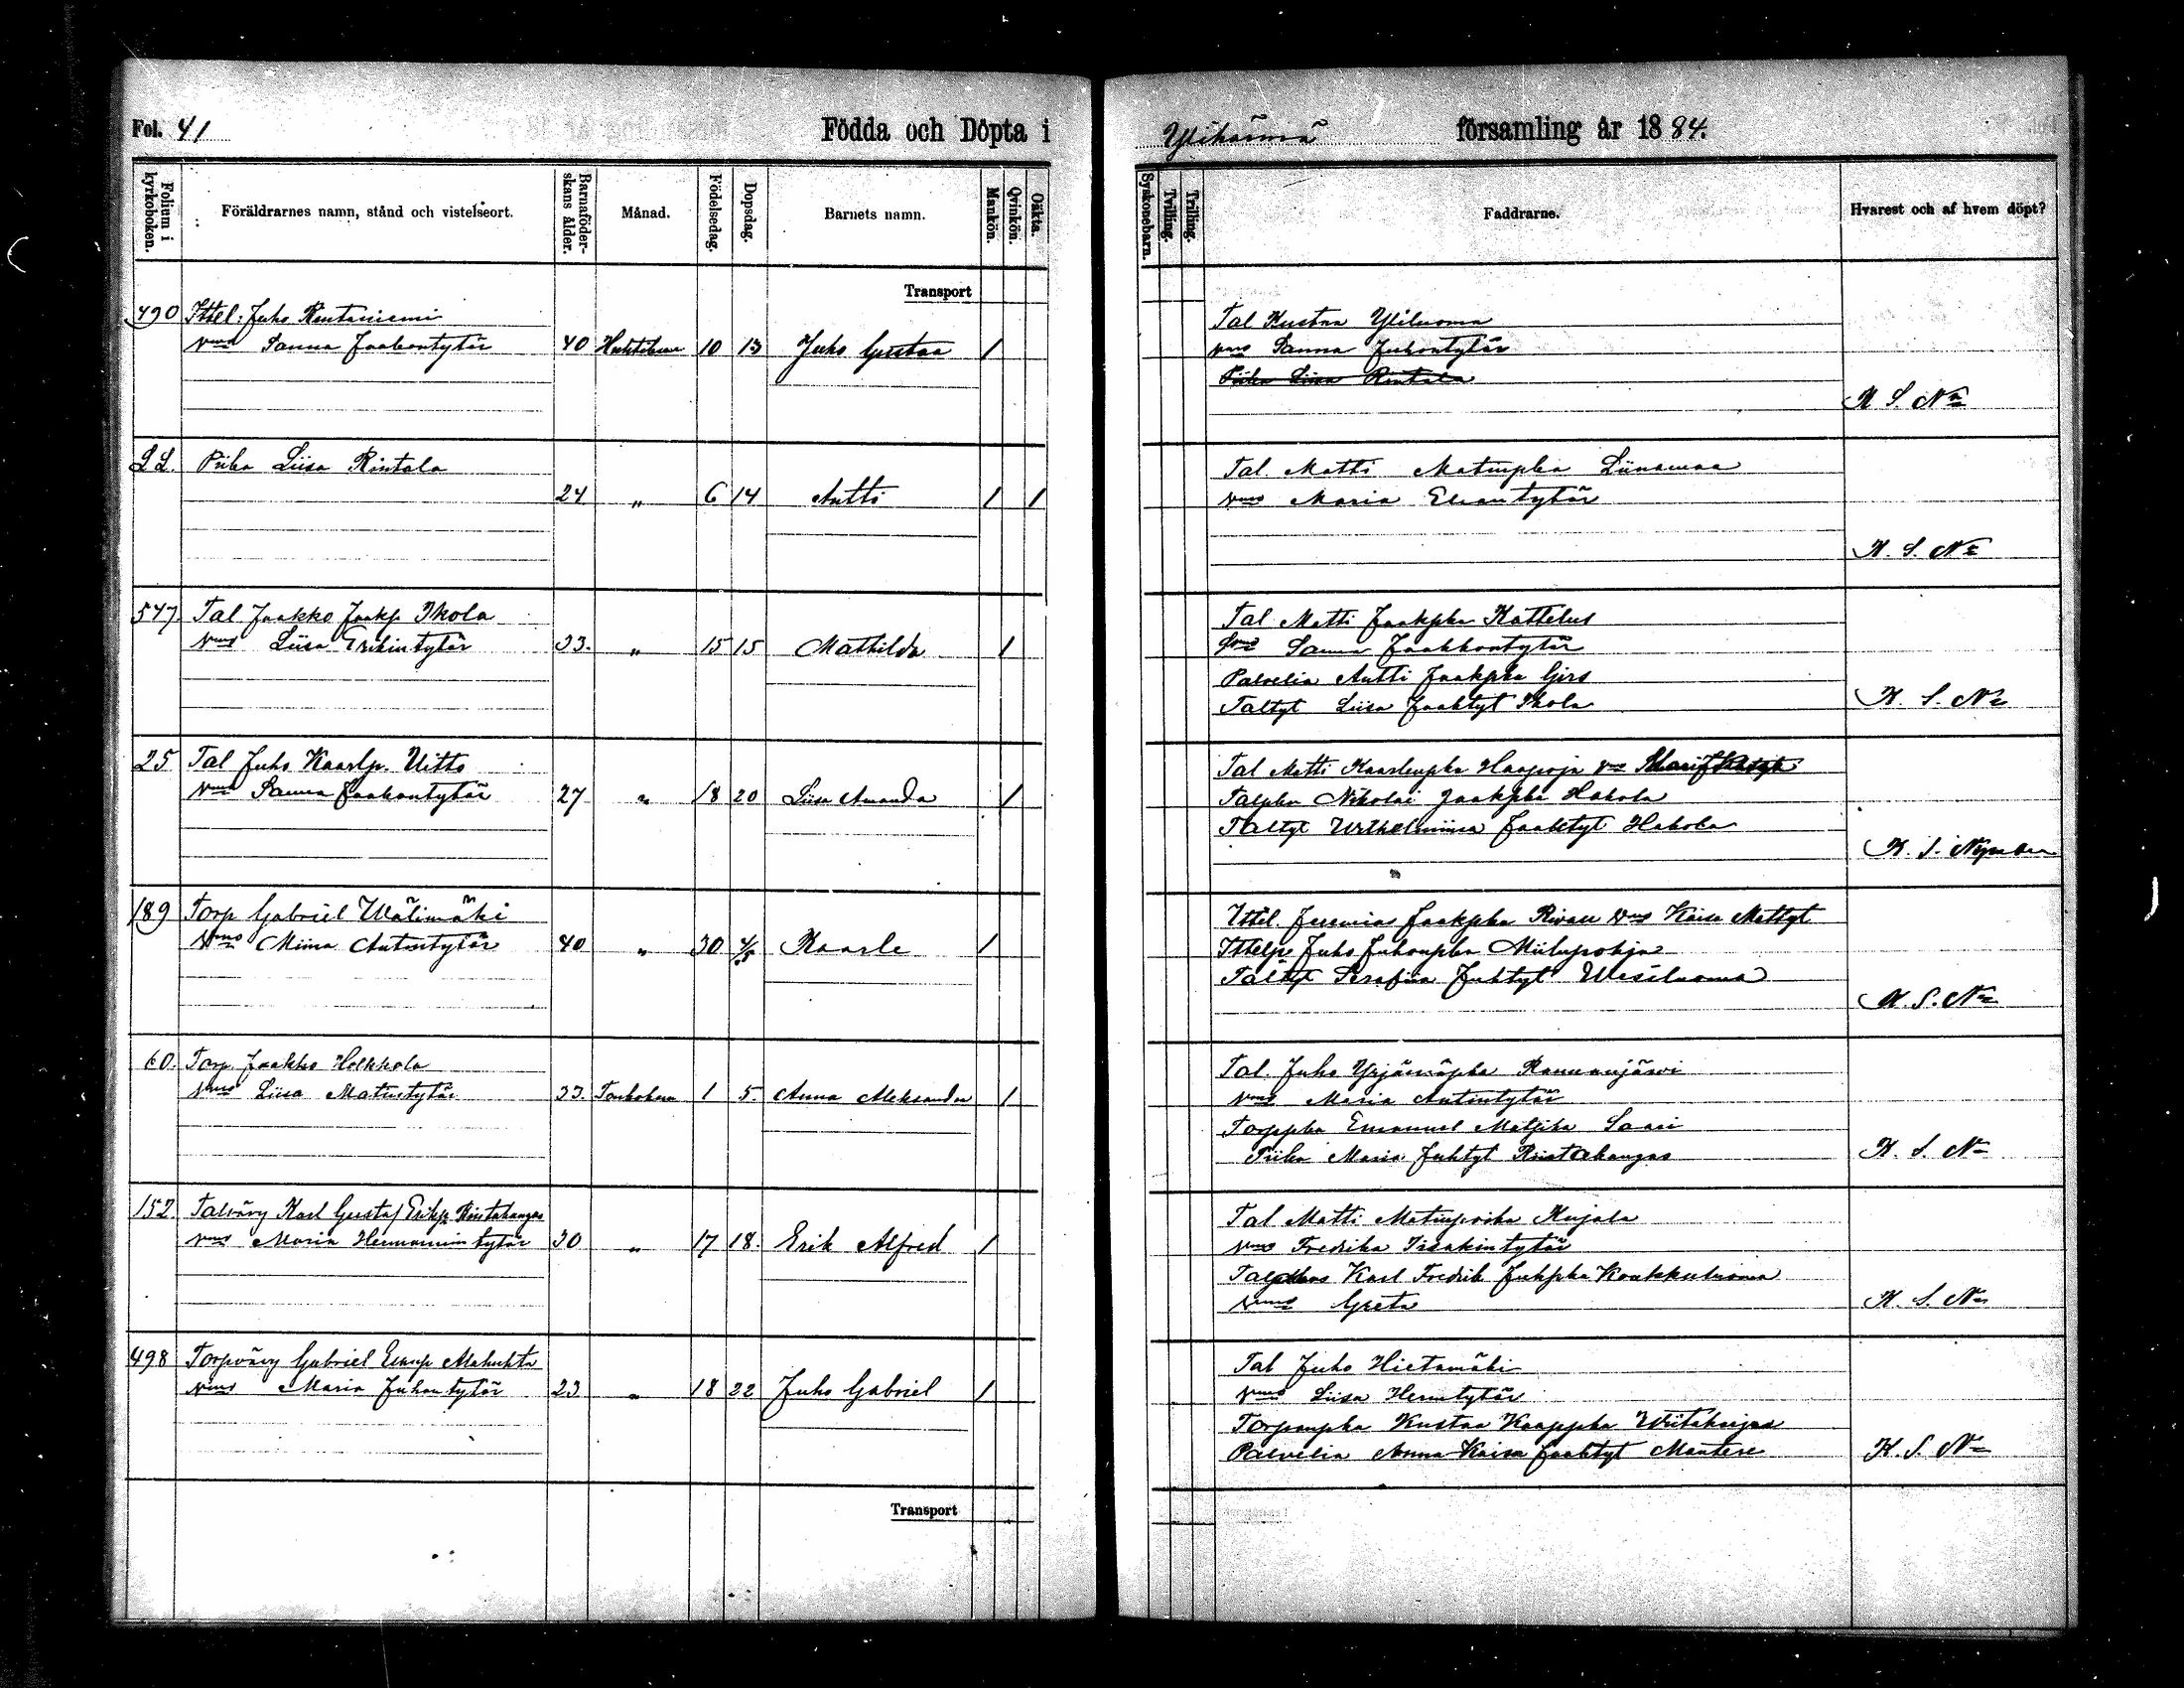 Fol. 41
Födda och Döpta i
Ylihärmä församling år 1884.
Folium i kyrkoboken.
Föräldrarnes namn, stånd och vistelseort.
Barnaföderskans ålder.
Månad.
Födelsedag.
Dopsdag.
Barnets namn.
Mankön.
Qvinkön.
Oäkta.
Syskonebarn.
Tvilling.
Trilling.
Faddrarne.
Hvarest och af hvem döpt?
Transport
490 Ittel: Juho Rintaniemi
vmo Sanna Jaakontytär 40 Huhtikuu 10 13 Juho Gustaa 1
Tal Kustaa Yliluoma
vmo Sanna Juhontytär
Piika Liisa Rintala
K. S. Nn
LL. Piika Liisa Rintala
24 " 6 14 Antti 1 1
Tal. Matti Matinpka Liinamaa
vmo Maria Eliantytär
K. S. Nn
547. Tal. Jaakko Jaakp. Ikola
vmo Liisa Erikintytär 33. " 15 15 Mathilda 1
Tal. Matti Jaakpka Kattelus
vmo Sanna Jaakkontytär
Palvelia Antti Jaakpka Girs
Taltyt Liisa Jaaktyt Ikola
K. S. Nn
25 Tal Juho Kaarlp. Uitto
vmo Sanna Jaakontytär 27 " 18 20 Liisa Amanda 1
Tal Matti Kaarlenpka Haapoja vmo
Talpka Nikolai Jaakpka Hakola
Taltyt Wilhelmiina Jaaktyt Hakola
K. S. Nyman
189 Torp Gabriel Wälimäki
vmo Miina Antintytär 40 " 30 4/5 Kaarle 1
Ittel. Jeremias Jaakpka Rivari vmo Kaisa Mattyt
Ittelp. Juho Juhonpka Miilupohja
Taltyt Serafiia Juhtyt Wesiluoma
K. S. Nn
60. Torp. Jaakko Holkkola
vmo Liisa Matintytär 33. Toukokuu 1 5. Anna Aleksandra 1
Tal. Juho Yrjänänpka Rannanjärvi
vmo Maria Antintytär
Torppka Emanuel Matpka Saari
Piika Maria Juhtyt Ristakangas
K. S. Nn
152. Talvävy Karl Gustaf Erikp. Ristakangas
vmo Maria Hermannintytär 30 " 17 18. Erik Alfred 1
Tal Matti Matinpoika Kujala
vmo Fredrika Iisakintytär
Karl Fredrik Juhpka Koukkuluoma
vmo Greta
K. S. Nn
498 Torpvävy Gabriel Alahuhta
vmo Maria Juhontytär 23 " 18 22 Juho Gabriel 1
Tal Juho Hietamäki
vmo Liisa Hermtytär
Torpanpka Kustaa Kaappka
Palvelia Anna Kaisa Jaaktyt Mantere
K. S. Nn
Transport